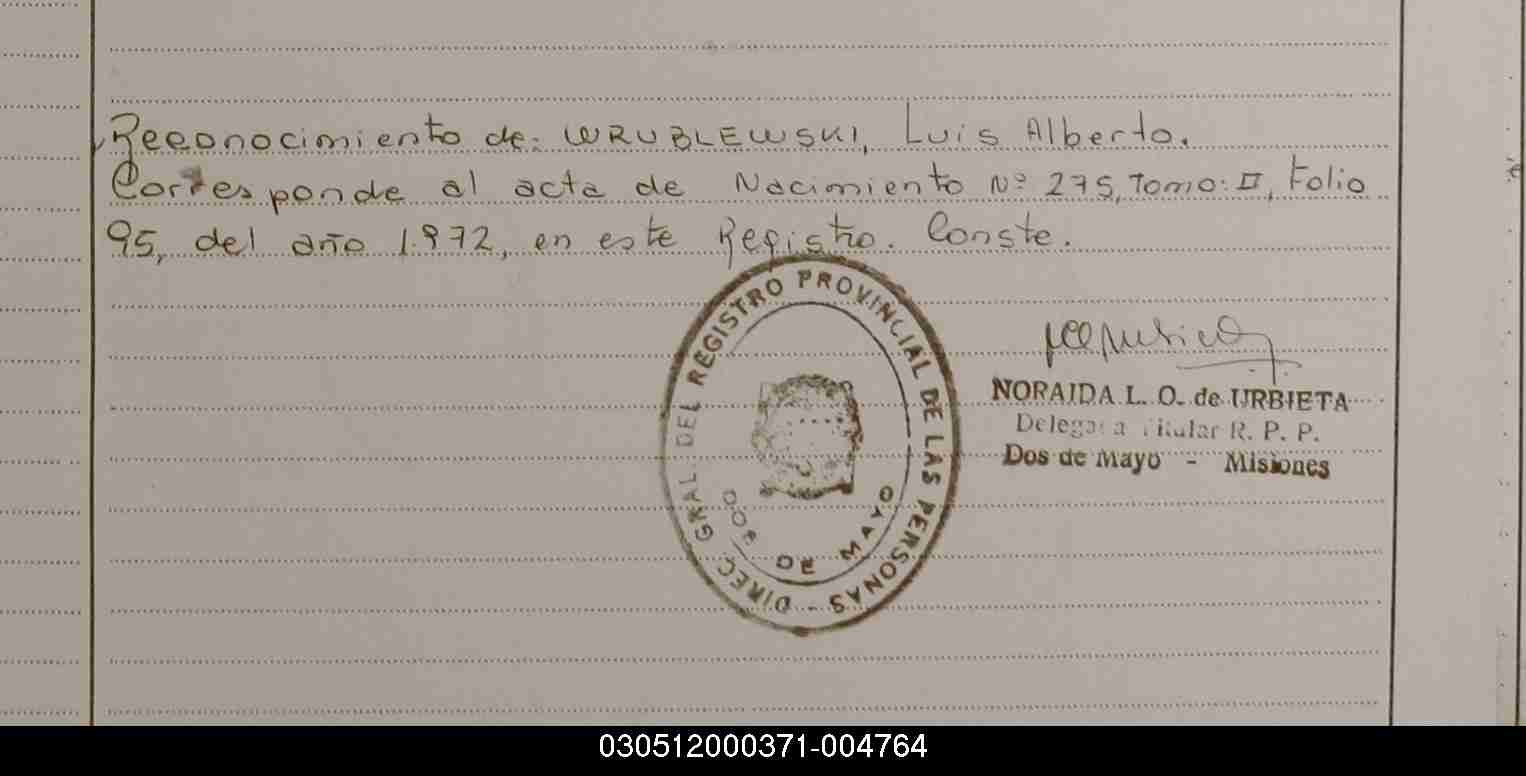 Reconocimiento de: WRUBLEWSKI, Luis Alberto.
Corresponde al acta de Nacimiento Nº 275, Tomo: II, Folio
95, del año 1.972, en este Registro. Conste.
DIREC. GRAL. DEL REGISTRO PROVINCIAL DE LAS PERSONAS -
DOS DE MAYO
NORAIDA L. O. de URBIETA
Delegada Titular R. P. P.
Dos de Mayo - Misiones
030512000371-004764